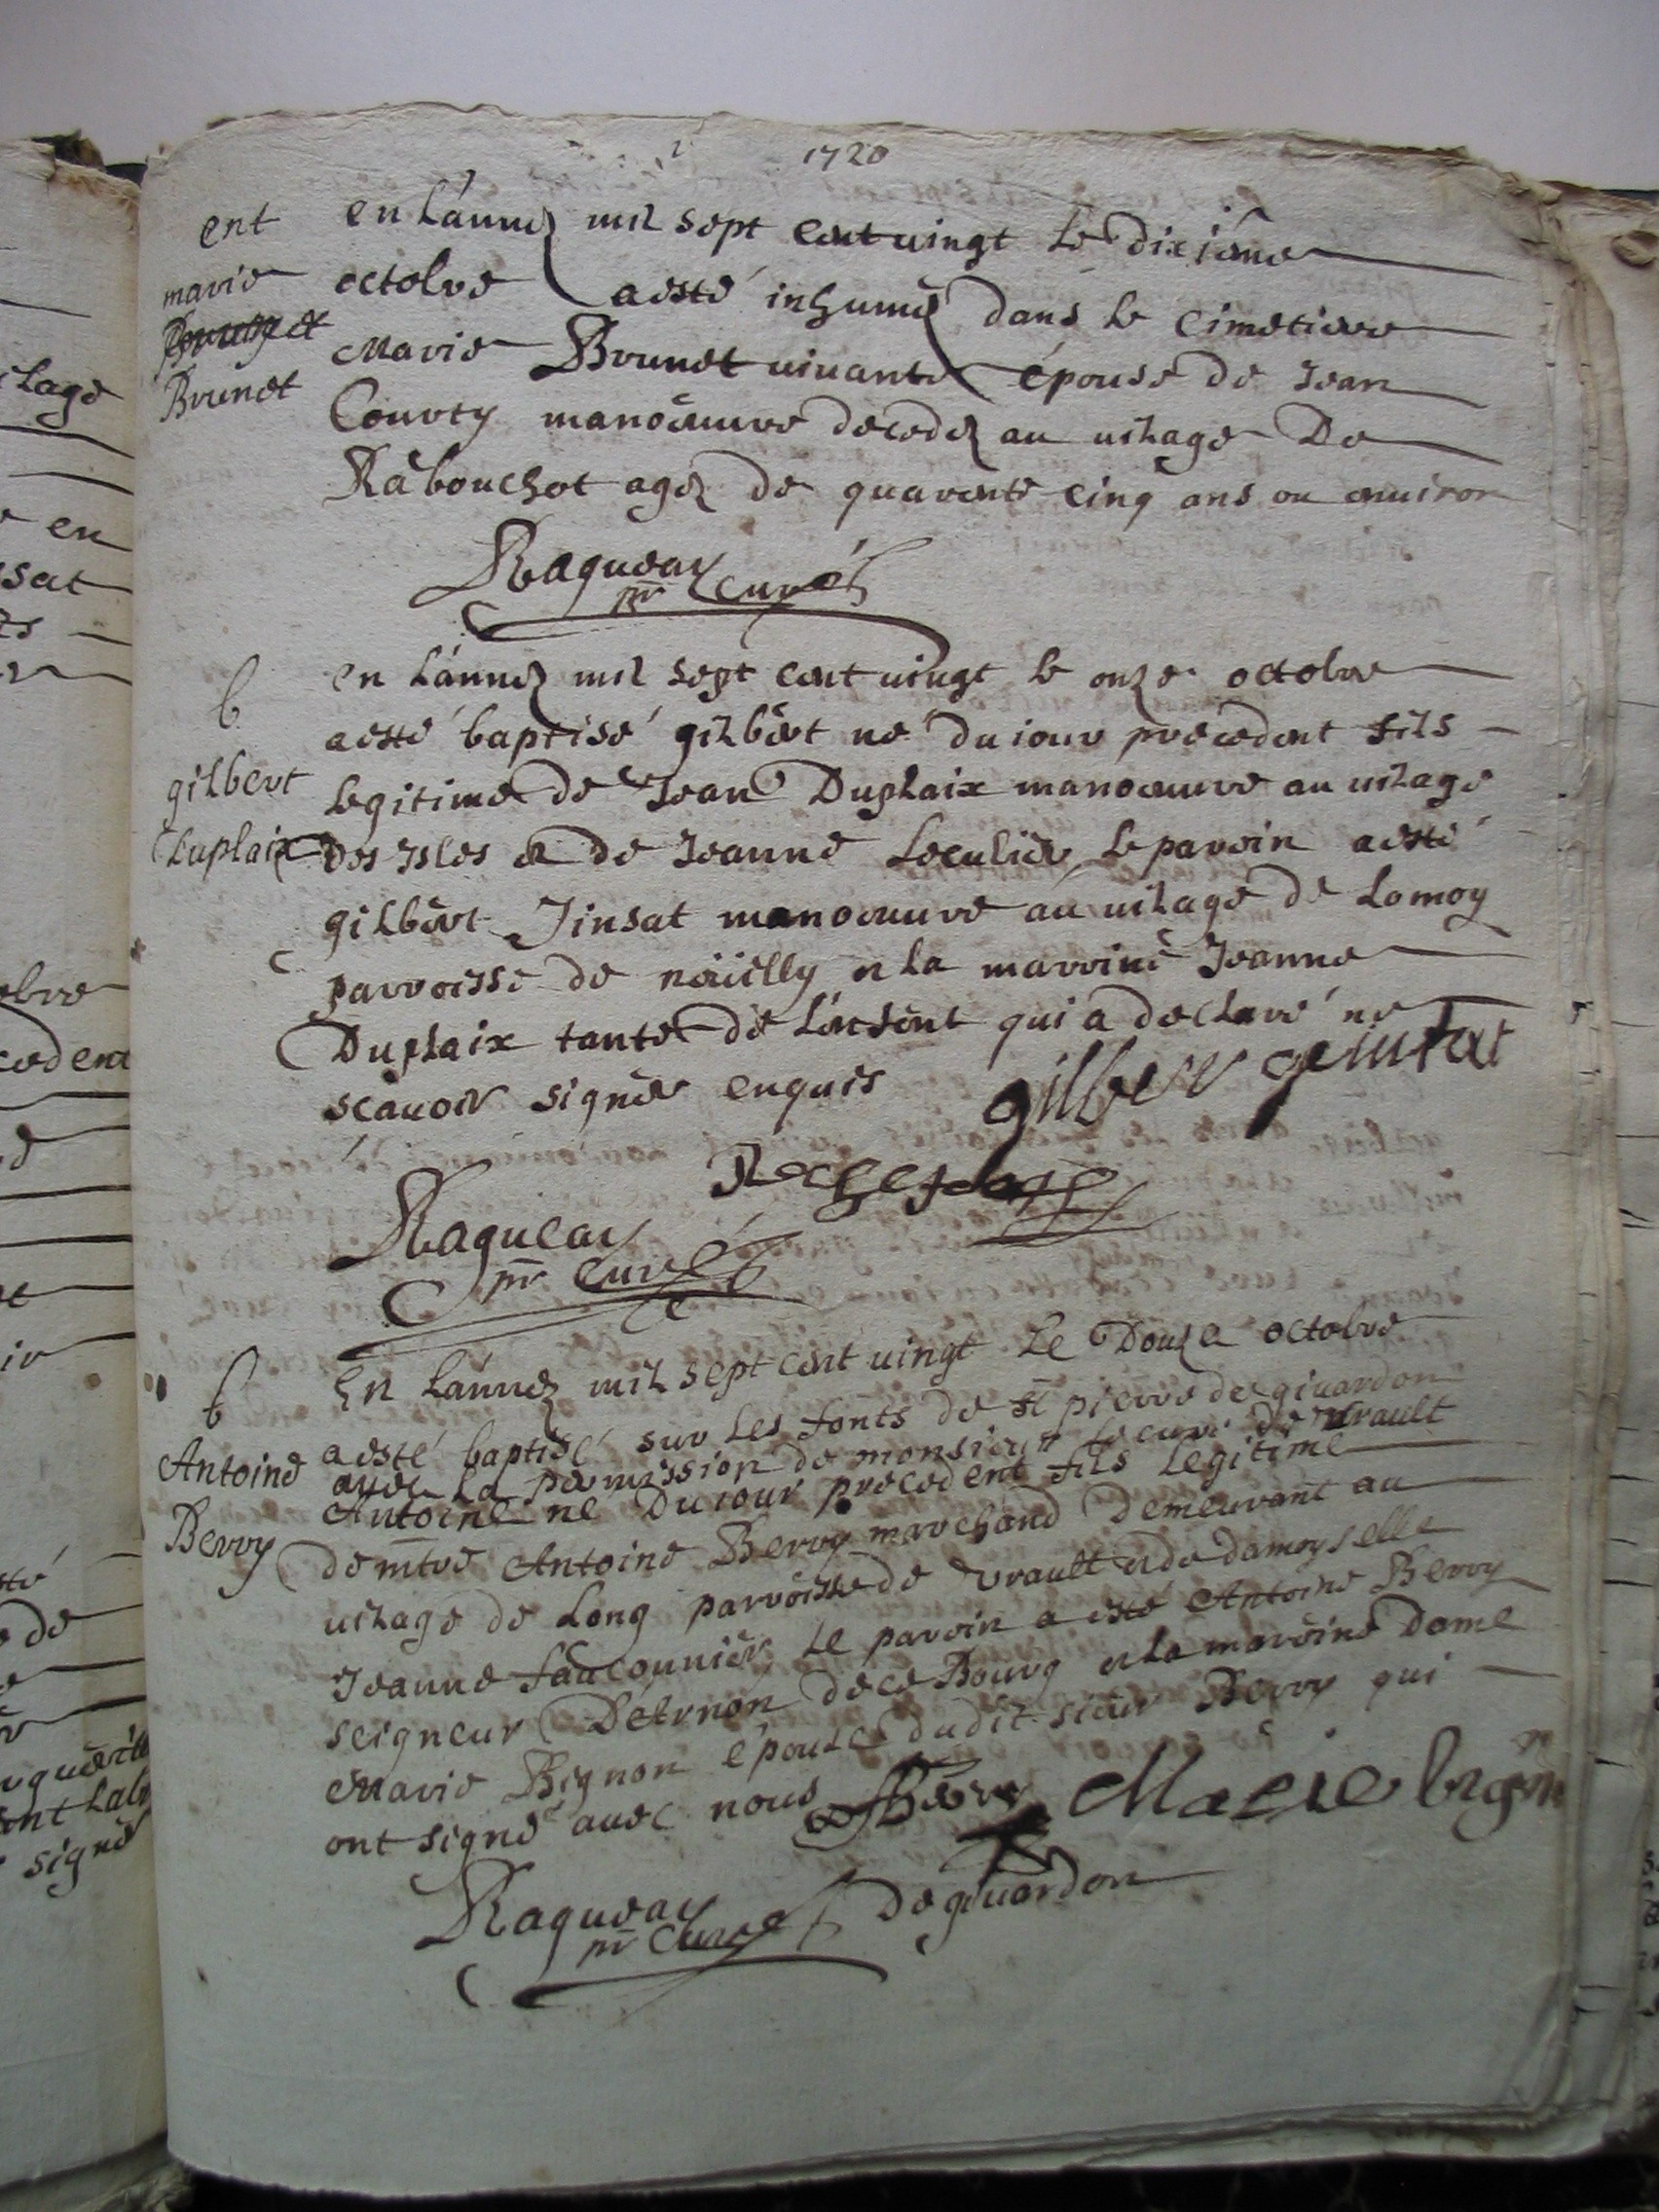 1720
ent
marie
Brunet
en l'année mil sept cent vingt le dixiéme
octobre a esté inhumée dans le cimetiere
Marie Brunet vivante épouse de Jean
Courty manoeuvre decedé au vilage De
Rabouchot agée de quarente cinq ans ou environ
Ragueau
pr curé
b
gilbert
Duplaix
en l'année mil sept cent vingt le onze octobre
a esté baptisé gilbert né du jour precedent fils
legitime de Jean Duplaix manoeuvre au vilage
Des Isles et de Jeanne Leculier, le paroin a esté
gilbert Jinsat manoeuvre au vilage de Lomoy
parroisse de nöüilly et la marrine Jeanne
Duplaix tante de l'enfent qui a declaré ne
scavoir signer enquis gilber geinsat
Rochefor
Ragueau
pr curé
b
Antoine
Berry
En l'année mil sept cent vingt Le Douze octobre
a esté baptisé sur les fonts de st pierre de givardon
avec la permission de monsieur le curé de vrault
Antoine né Du jour precedent fils Legitime
de mtre Antoine Berry marchand Demeurant au
vilage de Long parroisse de vrault et de damoyselle
Jeanne fauconnier, le paroin a esté Antoine Berry
seigneur D'Arnon de ce Bourg et la maroine Dame
Marie Bignon épouse dudit sieur Berry qui
ont signé avec nous Berry Marie bignon
Ragueau
pr curé De givardon